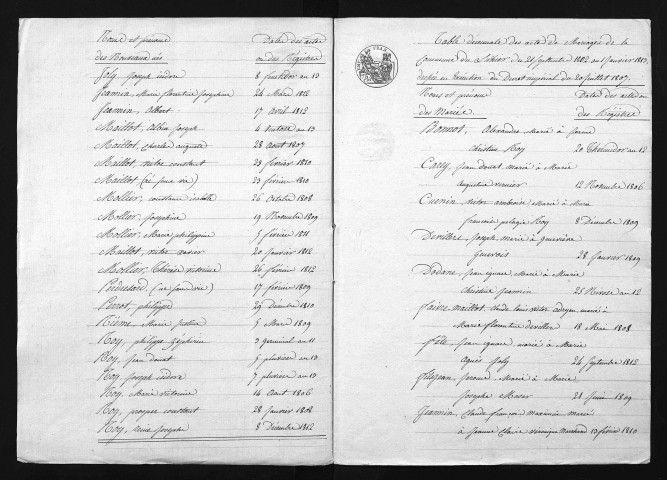 Noms et prénoms Dates des actes
des Nouveaux nés ou des Régistres
Joly, Joseph isidore 8 fructidor an 13
Jeannin, Marie florentine Josephine 24 Mars 1812
Jeannin, Albert 17 avril 1812
Maillot, Albin Joseph 4 Ventose an 13
Maillot, Charles auguste 28 aout 1807
Maillot, victor constant 23 février 1810
Maillot, (né sans vie) 23 février 1810
Mollier, constance 26 Octobre 1808
Mollier, Josephine 19 Novembre 1809
Mollier, Marie philippine 5 février 1811
Maillot, victor xavier 20 Janvier 1812
Mollier, victoire 26 février 1812
(né sans vie) 17 février 1809
Perrot, philippe 29 Décembre 1810
Marie Justine 5 Mars 1809
Roy, philippe Zéphirin 3 germinal an 11
Roy, Jean donat 5 pluviose an 13
Roy, Joseph isidore 7 pluviose an 13
Roy, Marie victorine 14 Aout 1806
Roy, prosper constant 28 Janvier 1808
Roy, Josephe 8 Décembre 1812
Table décennale des actes de Mariages de la
Commune du du 21 Septembre 1802 au 1 Janvier 1813,
dressée en Exécution du Décret impérial du 20 Juillet 1807.
Noms et prénoms Dates des actes ou
des Mariés des Régistres
Bonnot, Alexandre Marié à Jeanne
christine Roy 20 Thermidor an 12
Jean donat, marié à Marie
augustine vernier 12 Novembre 1806
Cuenin victor ambroise Marié à Marie
françoise pelagie Roy 8 Décembre 1809
Devillers, Joseph, Marié à
28 Janvier 1809
Dodane, Jean ignace, Marié à Marie
christine Jeannin 25 Nivose an 12
faivre maillot, claude louis victor marié à
Marie florentine devillers 18 Mai 1808
Jean ignace, marié à Marie
agnès Joly 24 Septembre 1812
Marié à Marie
Josephe Moser 21 Juin 1809
Jeannin, Claude françois maximin marié
à Jeanne Claire véronique 13 février 1810